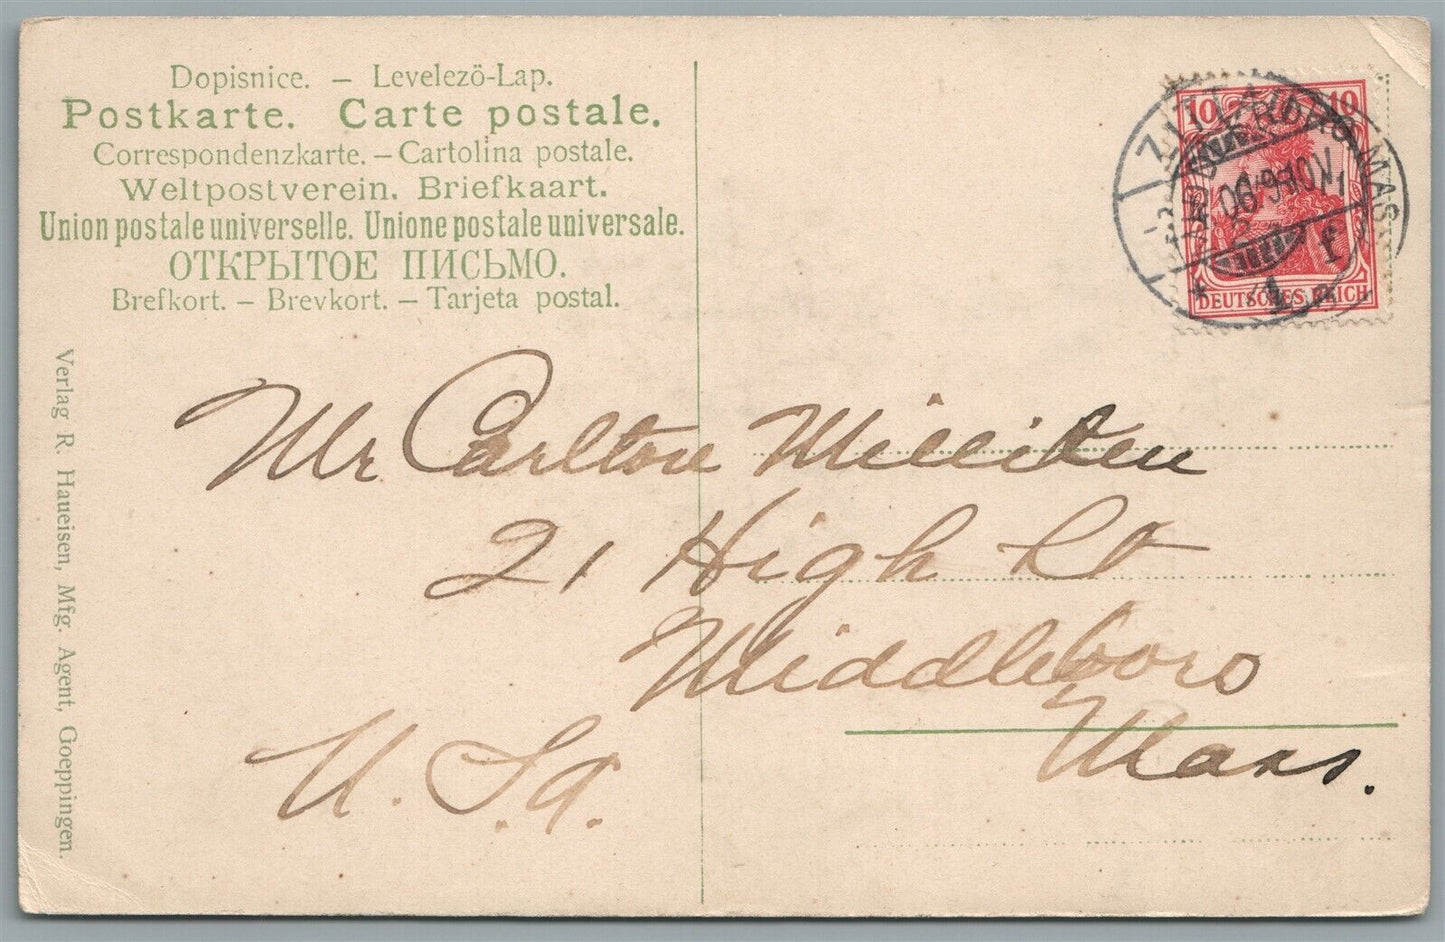 Dopisnice. – Levelező-Lap.
Postkarte. Carte postale.
Correspondenzkarte. – Cartolina postale.
Weltpostverein. Briefkaart.
Union postale universelle. Unione postale universale.
ОТКРЫТОЕ ПИСЬМО.
Brefkort. – Brevkort. – Tarjeta postal.
Verlag R. Haueisen, Mfg. Agent, Goeppingen.
10 10
DEUTSCHES REICH
Mr Carlton Milliken
21 High St
Middleboro
Mass.
U.S.A.